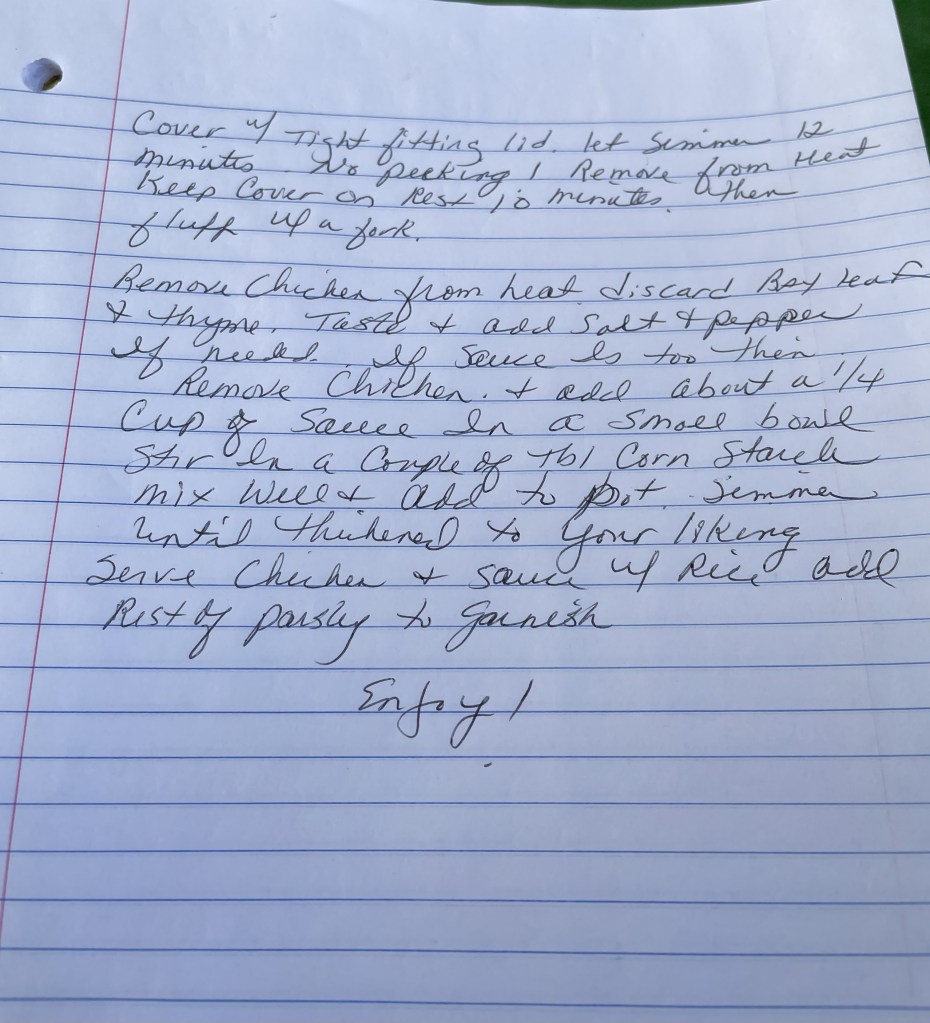 Cover w/ Tight fitting lid. let Simmer 12
minutes. No peeking! Remove from Heat
Keep Cover on Rest 10 minutes. then
fluff w/ a fork.
Remove Chicken from heat discard Bay leaf
& thyme. Taste & add Salt & pepper
if needed. If Sauce Is too thin
Remove Chicken. & add about a 1/4
Cup of Sauce In a Small bowl
Stir In a Couple of tbl Corn Starch
mix Well & add to pot. Simmer
until thickened to your liking
Serve Chicken & sauce w/ Rice add
Rest of parsley to garnish
Enjoy!